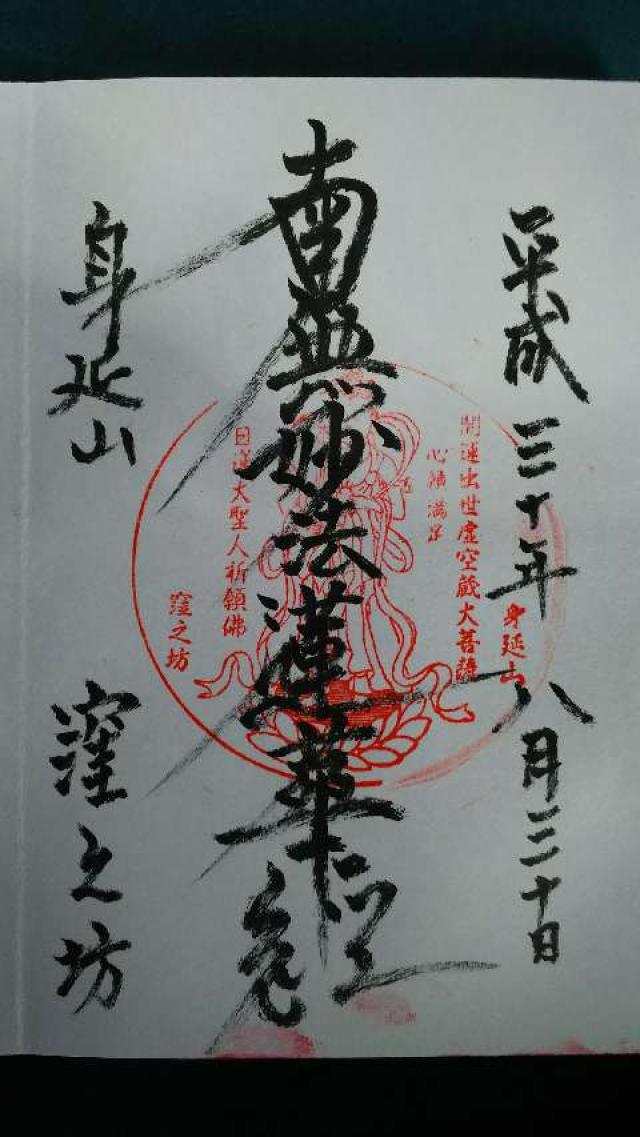 平成三十年 八月三十日
南無妙法蓮華経
身延山 窪之坊
身延山
開運出世虚空蔵大菩薩
心願満足
日蓮大聖人祈願佛
窪之坊